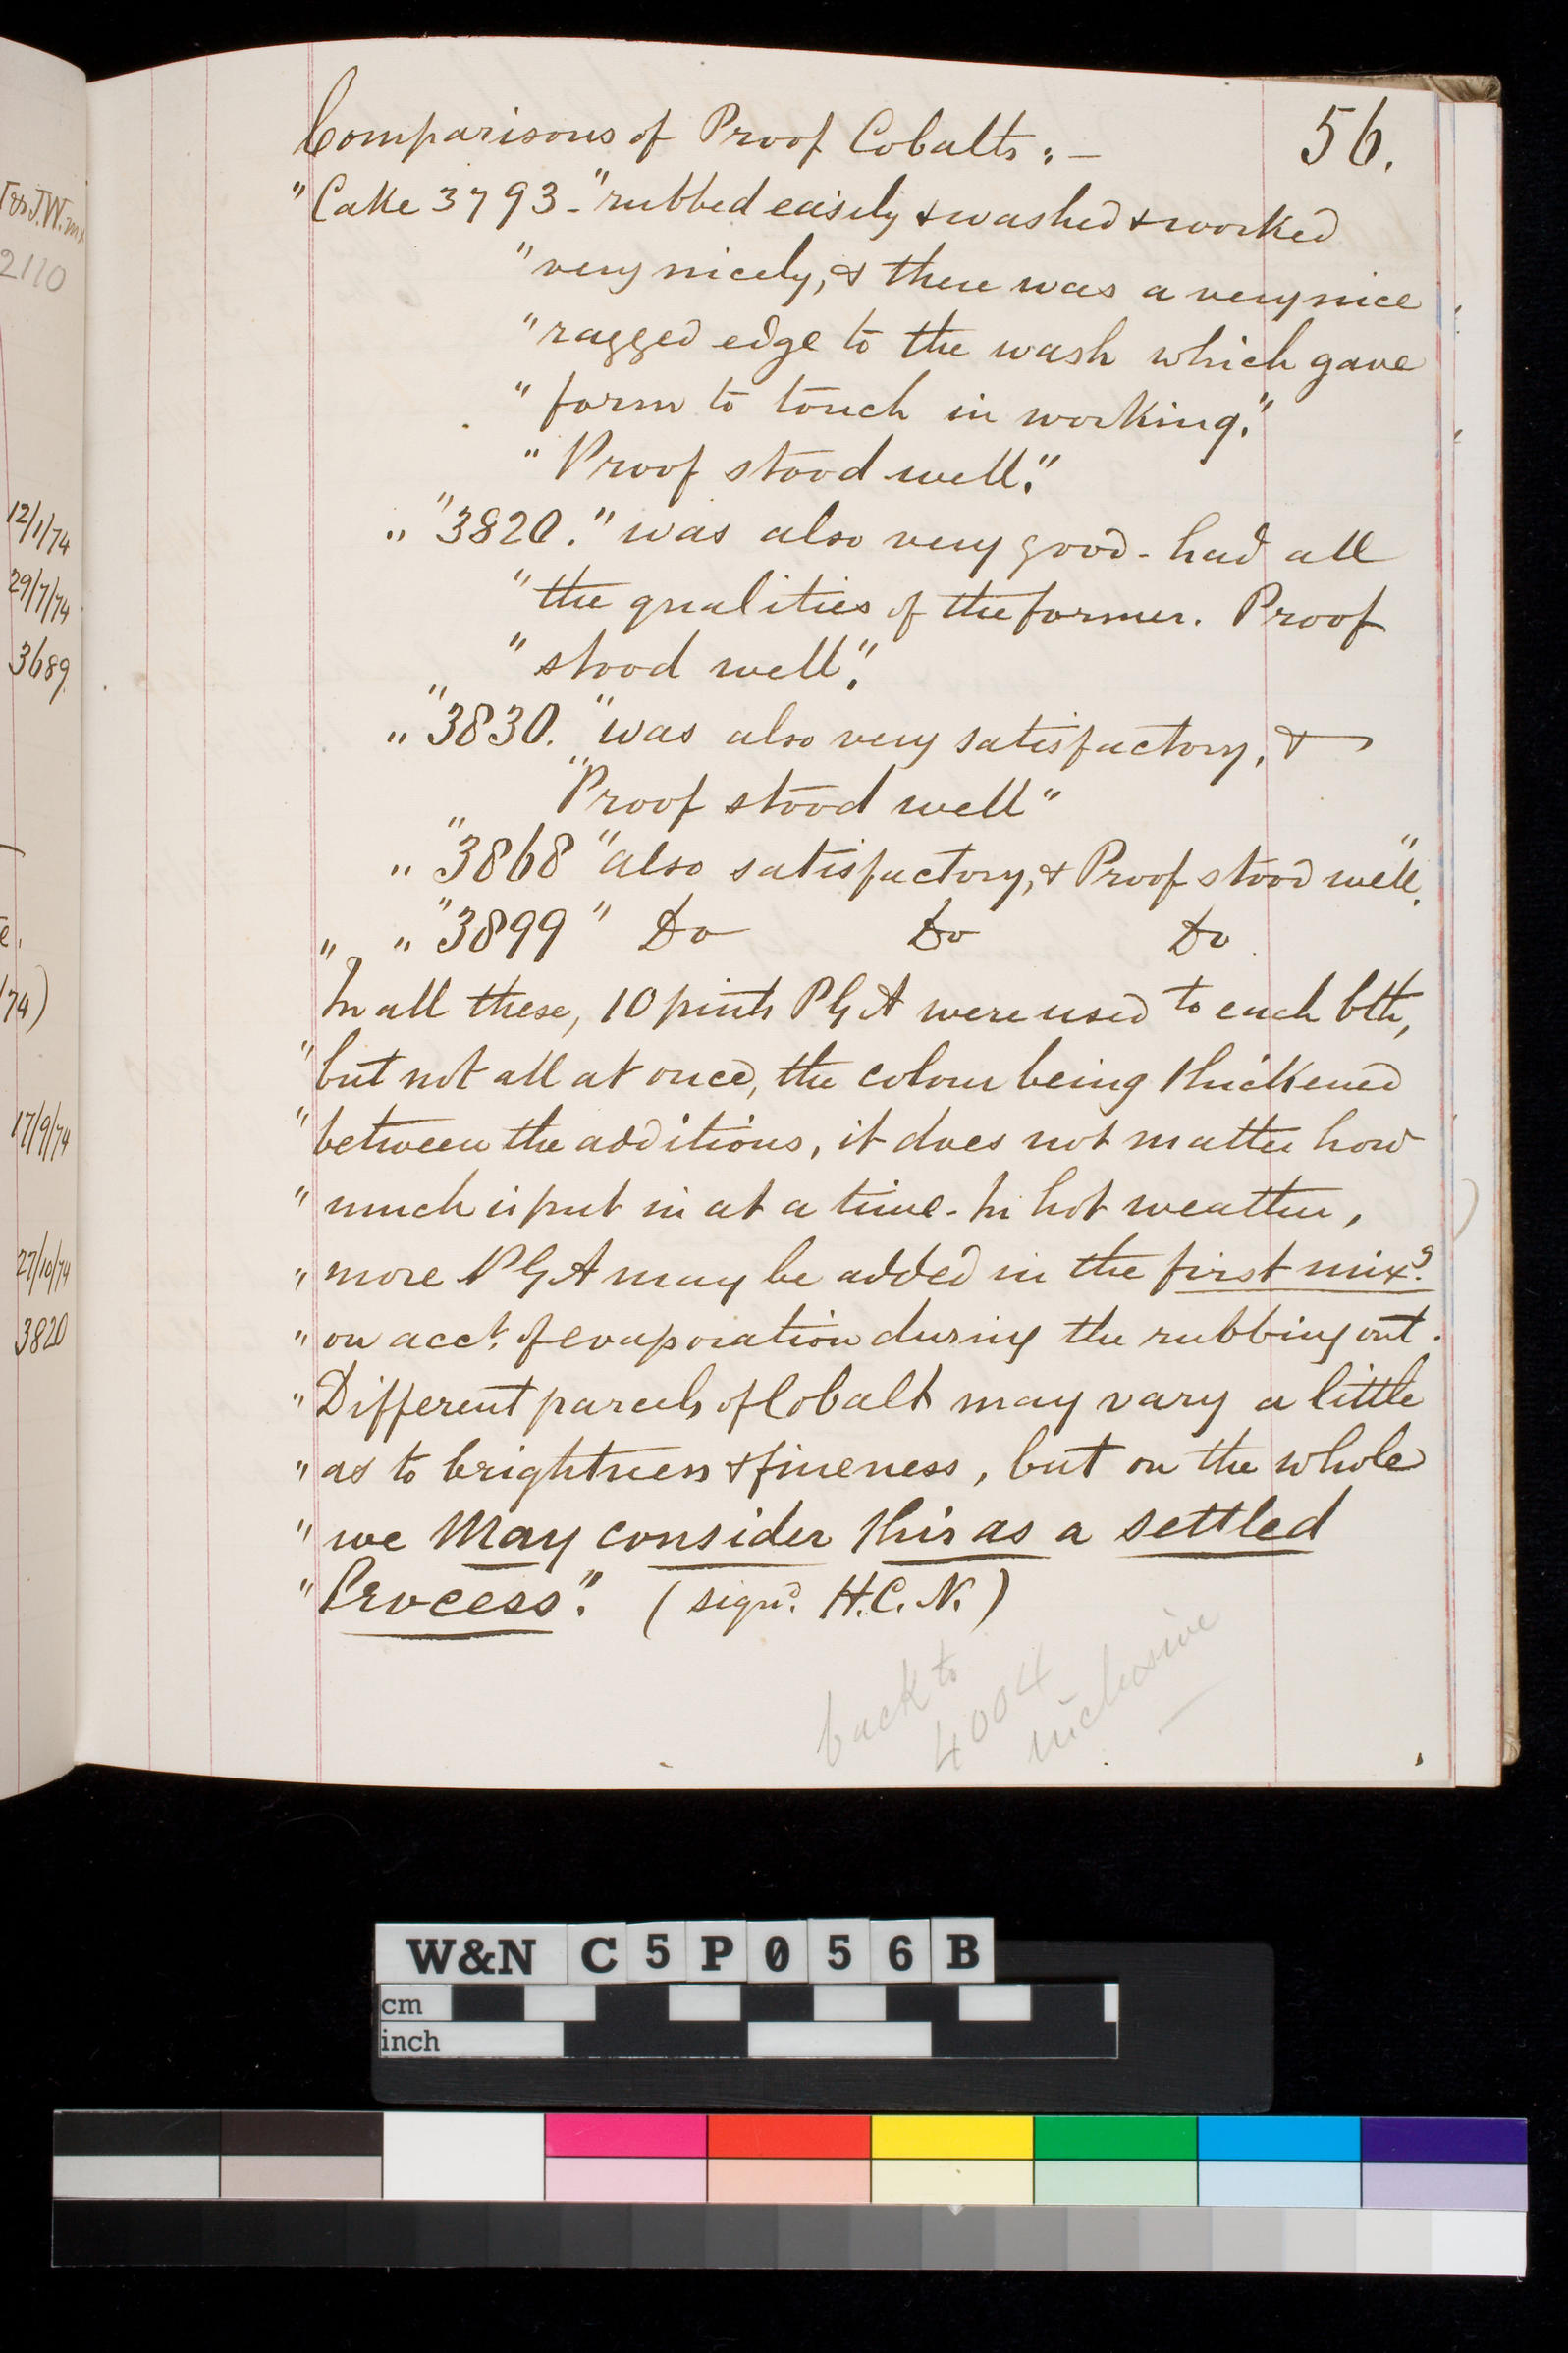 Comparisons of Proof Cobalts :—
56.
"Cake 3793 - "rubbed easily & washed & worked
"very nicely, & there was a very nice
"ragged edge to the wash which gave
"form to touch in working."
"Proof stood well."
„ "3820." was also very good - had all
"the qualities of the former. Proof
"stood well".
„ "3830. "was also very satisfactory, &
"Proof stood well"
„ "3868 "also satisfactory, & Proof stood well."
„ „ "3899 " Do Do Do
In all these, 10 pints PGA were used to each bth,
"but not all at once, the colour being thickened
"between the additions, it does not matter how
"much is put in at a time. In hot weather,
„ more PGA may be added in the first mixg.
„ on acct. of evaporation during the rubbing out.
„ Different parcels of Cobalt may vary a little
„ as to brightness & fineness, but on the whole
"we may consider this as a settled
"Process". (signd. H.C.N.)
back to
4004
inclusive
2110
12/1/74
29/7/74
3689
/74)
17/9/74
27/10/74
3820
W&N C5P056B
cm
inch